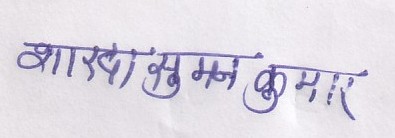 शारदा सुमन कुमार